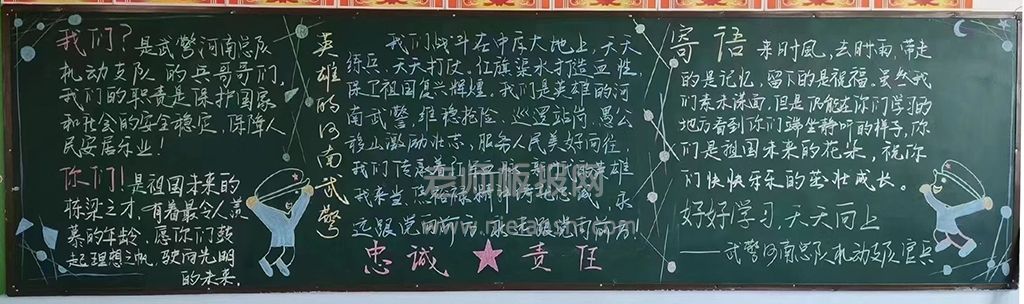 我们？是武警河南总队
机动支队的兵哥哥们，
我们的职责是保护国家
和社会的安全稳定，保障人
民安居乐业！
你们！是祖国未来的
栋梁之才，有着最令人羡
慕的年龄，愿你们鼓
起理想之帆，驶向光明
的未来。
英雄的河南武警
我们战斗在中原大地上，天天
练兵，天天打仗。红旗渠水打造血性，
保卫祖国复兴辉煌。我们是英雄的河
南武警，维稳抢险，巡逻站岗，愚公
移山激励壮志，服务人民美好向往，
我们传承着
英雄
我来当
忠诚，永
远跟党向前方，永远跟党向前方！
忠诚★责任
寄语
来时风，去时雨，带走
的是记忆，留下的是祝福。虽然我
们素未谋面，但是仍能在你们学习的
地方看到你们端坐静听的样子，你
们是祖国未来的花朵，祝你
们快快乐乐的茁壮成长。
好好学习，天天向上
——武警河南总队机动支队官兵
老师板报网